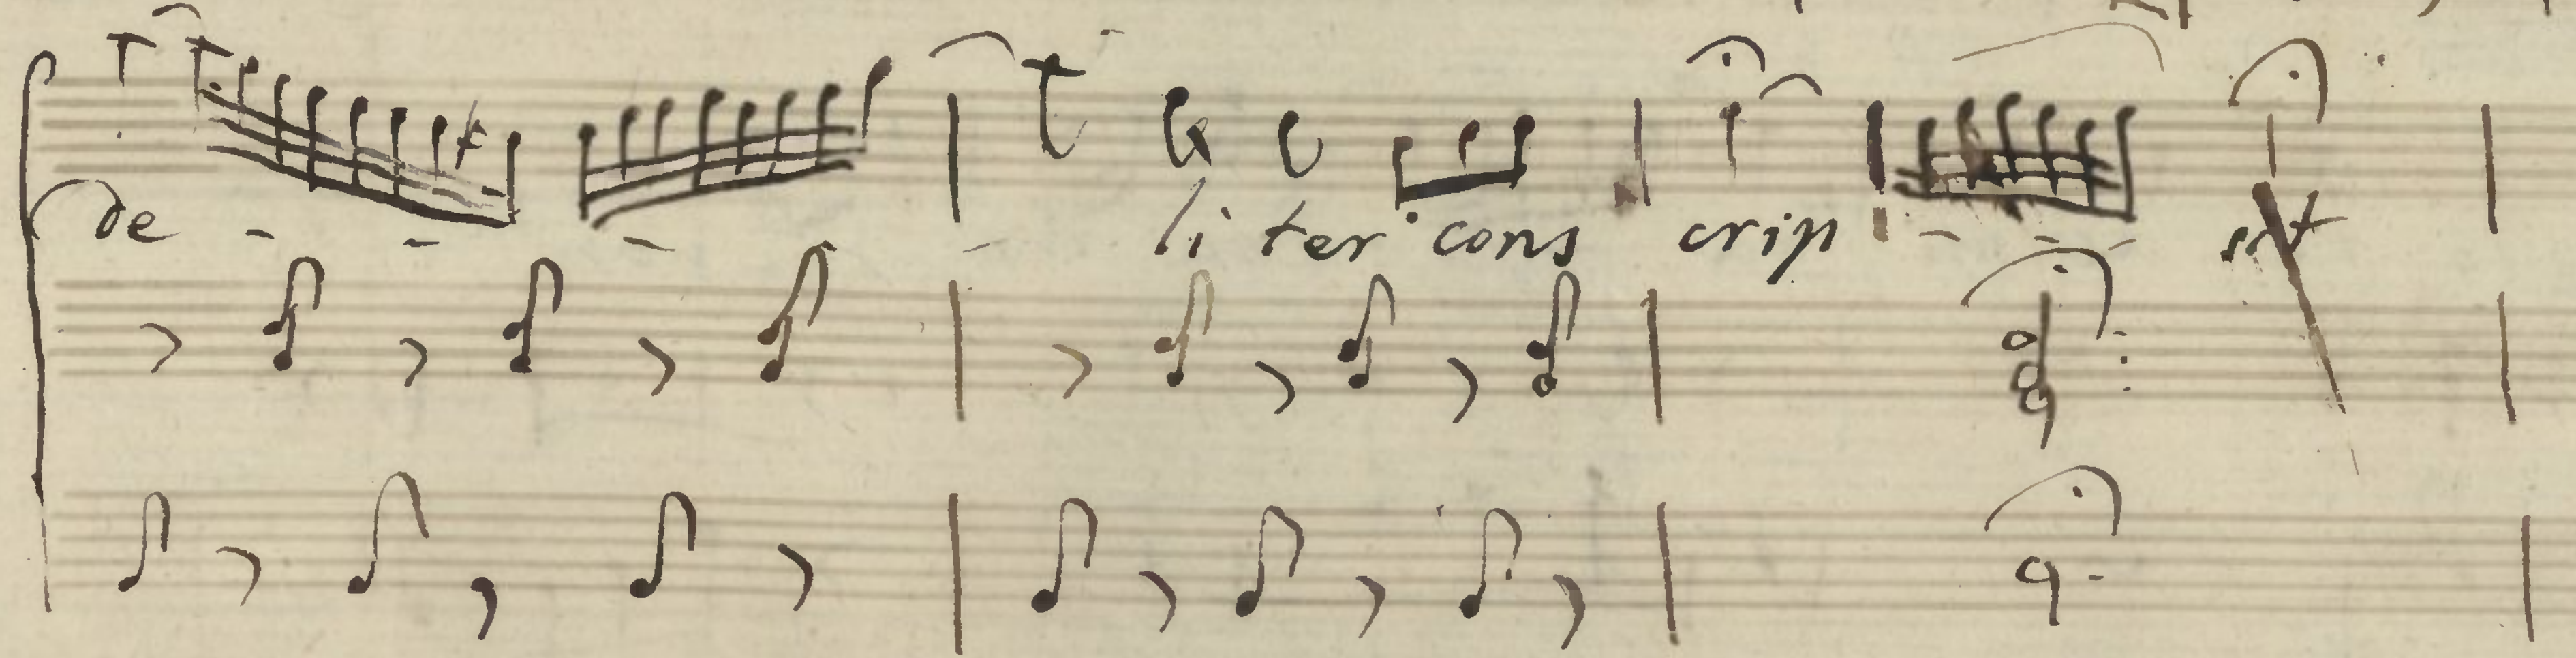 de - - - - li ter cons crip - - - sit